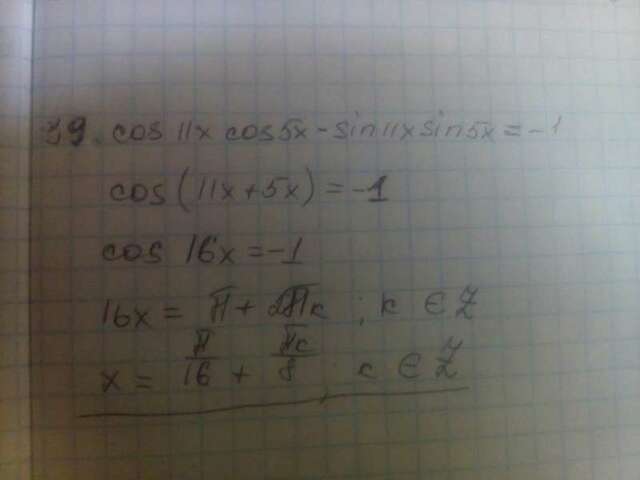 39. cos 11x cos5x - sin11x sin5x = -1
cos (11x + 5x) = -1
cos 16x = -1
16x = π + 2πк ; к ∈ Z
x = π/16 + πк/8 ; к ∈ Z